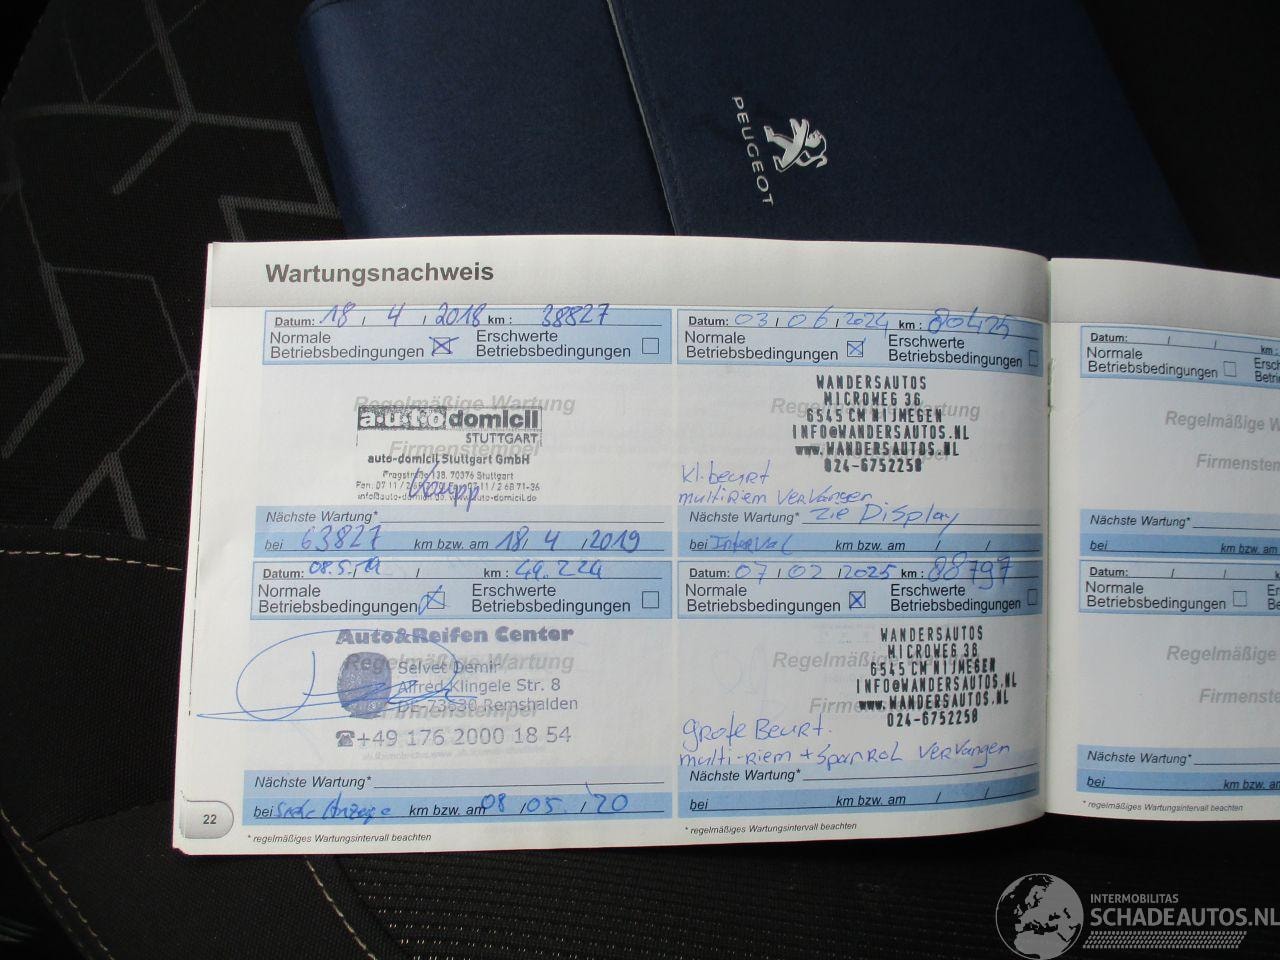 PEUGEOT
Wartungsnachweis
Datum: 18 / 4 / 2018 km : 38827
Normale Betriebsbedingungen
Erschwerte Betriebsbedingungen
Regelmäßige Wartung
Firmenstempel
auto domicil
STUTTGART
auto-domicil Stuttgart GmbH
70376 Stuttgart
Nächste Wartung*
bei 63827 km bzw. am 18 / 4 / 2019
Datum: 08.5.19 / km : 49.224
Normale Betriebsbedingungen
Erschwerte Betriebsbedingungen
Auto&Reifen Center
Regelmäßige Wartung
Selvet Demir
Alfred Klingele Str. 8
DE-73630 Remshalden
Firmenstempel
☎+49 176 2000 18 54
Nächste Wartung*
bei Siehe Anzeige km bzw. am 08 / 05 / 20
22
* regelmäßiges Wartungsintervall beachten
Datum: 03 / 06 / 2024 km : 80425
Normale Betriebsbedingungen
Erschwerte Betriebsbedingungen
Regelmäßige Wartung
WANDERSAUTOS
MICROWEG 36
6545 CM NIJMEGEN
INFO@WANDERSAUTOS.NL
www.WANDERSAUTOS.NL
024-6752258
kl. beurt
multiriem vervangen
Nächste Wartung* zie Display
bei Interval km bzw. am / /
Datum: 07 / 02 / 2025 km : 88797
Normale Betriebsbedingungen
Erschwerte Betriebsbedingungen
WANDERSAUTOS
MICROWEG 36
6545 CM NIJMEGEN
INFO@WANDERSAUTOS.NL
www.WANDERSAUTOS.NL
024-6752258
grote Beurt.
multi-riem + spanrol vervangen
Nächste Wartung*
bei km bzw. am / /
* regelmäßiges Wartungsintervall beachten
Datum: / / km :
Normale Betriebsbedingungen
Regelmäßige
Firmenstem
Nächste Wartung*
bei km bzw. am
Datum: / / km :
Normale Betriebsbedingungen
Regelmäßige
Firmenst
Nächste Wartung*
bei km bzw. am
* regelmäßiges Wartungsintervall beachten
INTERMOBILITAS
SCHADEAUTOS.NL